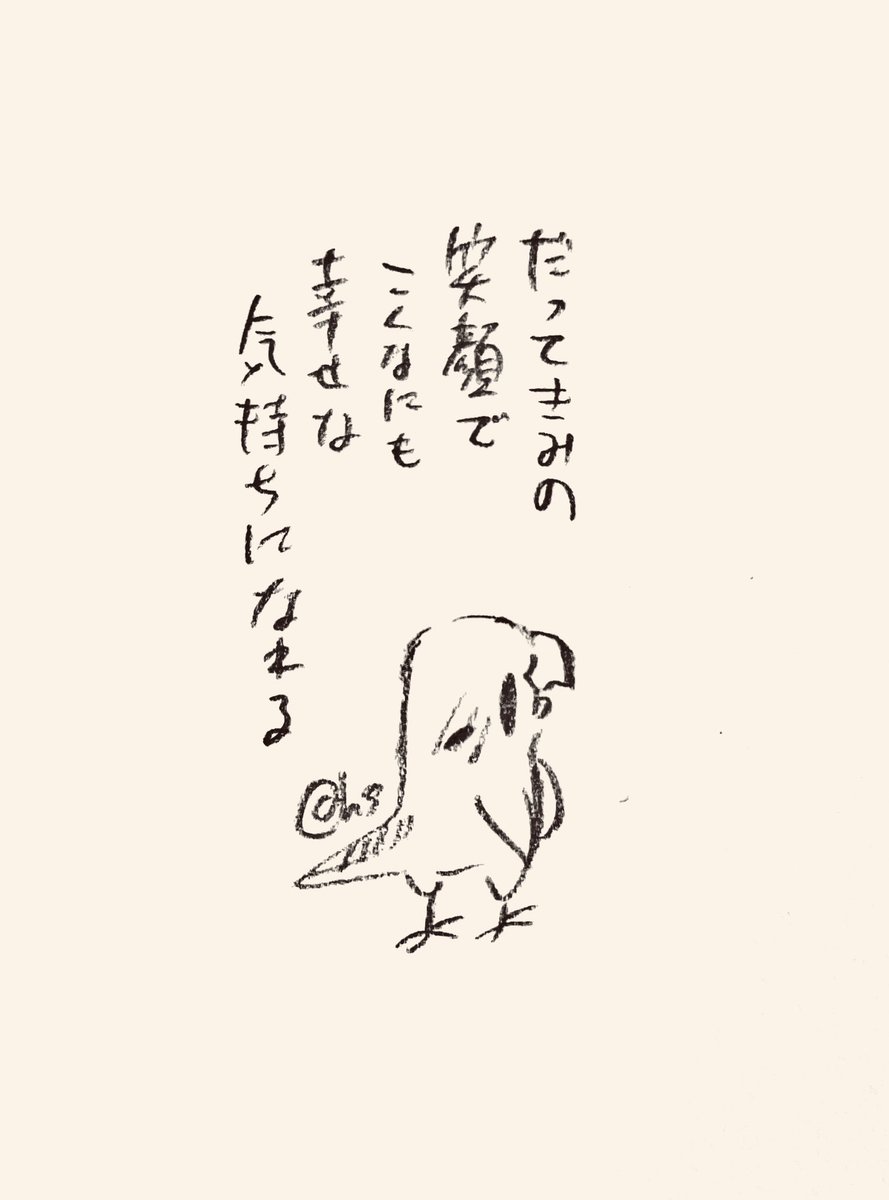 だってきみの
笑顔で
こくなにも
幸せな
気持ちになれる
@hs